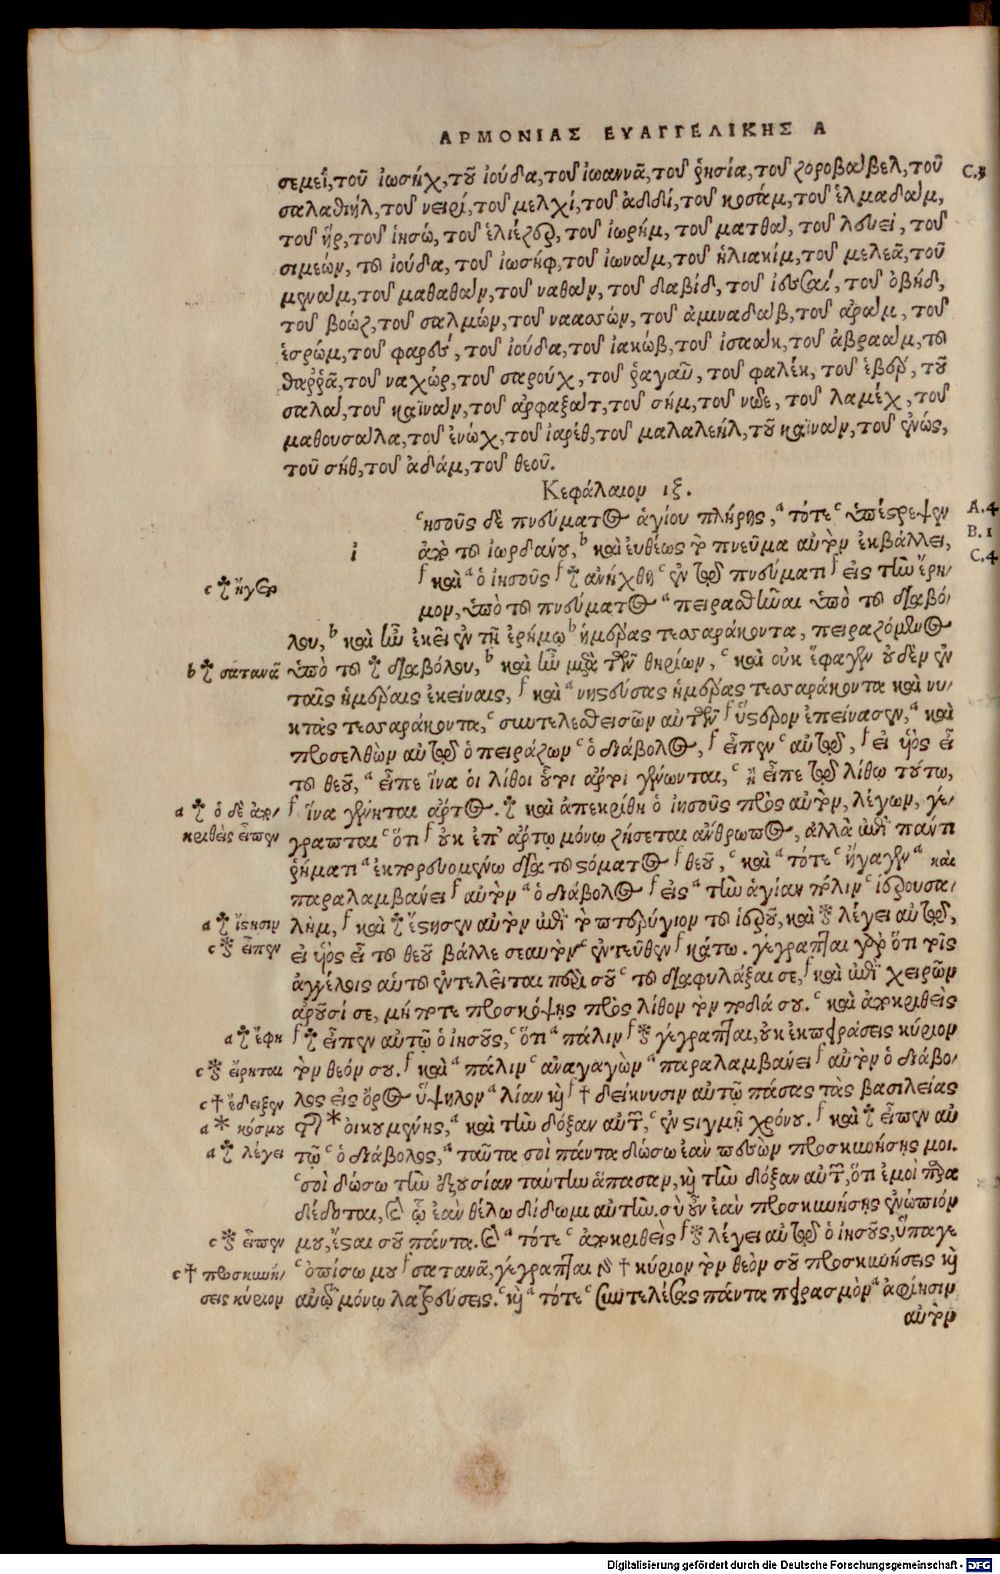 ΑΡΜΟΝΙΑΣ ΕΥΑΓΓΕΛΙΚΗΣ Α
σεμεΐ, τοῦ ἰωσήχ, τοῦ ἰούδα, τοῦ ἰωαννᾶ, τοῦ ῥησία, τοῦ ζοροβαβελ, τοῦ
C.3
σαλαθιήλ, τοῦ νειρί, τοῦ μελχί, τοῦ ἀδδί, τοῦ κοσάμ, τοῦ ἑλμαδαμ,
τοῦ ἤρ, τοῦ ἰησώ, τοῦ ἐλιέζερ, τοῦ ἰωρήμ, τοῦ ματθα, τοῦ λευεί, τοῦ
σιμεών, τοῦ ἰούδα, τοῦ ἰωσήφ, τοῦ ἰωναμ, τοῦ ἠλιακίμ, τοῦ μελεᾶ, τοῦ
μεναμ, τοῦ μαθαθαν, τοῦ ναθαν, τοῦ δαβίδ, τοῦ ἰεσσαί, τοῦ ὀβήδ,
τοῦ βοώζ, τοῦ σαλμών, τοῦ ναασών, τοῦ ἀμιναδαβ, τοῦ ἀραμ, τοῦ
ἐσρώμ, τοῦ φαρές, τοῦ ἰούδα, τοῦ ἰακώβ, τοῦ ἰσαακ, τοῦ ἀβρααμ, τοῦ
θαῤῥᾶ, τοῦ ναχώρ, τοῦ σαρούχ, τοῦ ῥαγαῦ, τοῦ φαλέκ, τοῦ ἑβέρ, τοῦ
σαλα, τοῦ καϊναν, τοῦ ἀρφαξατ, τοῦ σήμ, τοῦ νῶε, τοῦ λαμέχ, τοῦ
μαθουσαλα, τοῦ ἐνώχ, τοῦ ἰαρέθ, τοῦ μαλαλεήλ, τοῦ καϊναν, τοῦ ἐνώς,
τοῦ σήθ, τοῦ ἀδάμ, τοῦ θεοῦ.
Κεφάλαιον ιξ.
ᶜησοῦς δὲ πνεύματος ἁγίου πλήρης, ᵃ τότε ᶜ ὑπέστρεψεν
A.4
ἀπὸ τοῦ ἰορδάνου, ᵇ καὶ εὐθέως τὸ πνεῦμα αὐτὸν ἐκβάλλει,
B.1
ἰ
ᶠ καὶ ᵃ ὁ ἰησοῦς ᶠ ‡ ἀνήχθη ᶜ ἐν τῷ πνεύματι ᶠ εἰς τὴν ἔρη-
C.4
c ‡ ἤγετο
μον, ὑπὸ τοῦ πνεύματος ᵃ πειρασθῆναι ὑπὸ τοῦ διαβό-
λου, ᵇ καὶ ἦν ἐκεῖ ἐν τῇ ἐρήμῳ ᵇ ἡμέρας τεσσαράκοντα, πειραζόμενος
b ‡ σατανᾶ
ὑπὸ τοῦ ‡ διαβόλου, ᵇ καὶ ἦν μετὰ τῶν θηρίων, ᶜ καὶ οὐκ ἔφαγεν οὐδὲν ἐν
ταῖς ἡμέραις ἐκείναις, ᶠ καὶ ᵃ νηστεύσας ἡμέρας τεσσαράκοντα καὶ νύ-
κτας τεσσαράκοντα, ᶜ συντελεσθεισῶν αὐτῶν ᶠ ὕστερον ἐπείνασεν, ᵃ καὶ
προσελθὼν αὐτῷ ὁ πειράζων ᶜ ὁ διάβολος, ᶠ εἶπεν ᶜ αὐτῷ, ᶠ εἰ υἱὸς εἶ
τοῦ θεοῦ, ᵃ εἶπε ἵνα οἱ λίθοι οὗτοι ἄρτοι γένωνται, ᶜ ἢ εἶπε τῷ λίθῳ τούτῳ,
a ‡ ὁ δὲ ἀπο-
ᶠ ἵνα γένηται ἄρτος. ‡ καὶ ἀπεκρίθη ὁ ἰησοῦς πρὸς αὐτὸν, λέγων, γέ-
κριθεὶς εἶπεν
γραπται ᶜ ὅτι ᶠ οὐκ ἐπ' ἄρτῳ μόνῳ ζήσεται ἄνθρωπος, ἀλλὰ ἐπὶ παντὶ
ῥήματι ᵃ ἐκπορευομένῳ διὰ τοῦ στόματος ᶠ θεοῦ, ᶜ καὶ ᵃ τότε ᶜ ἤγαγεν ᵃ καὶ
παραλαμβάνει ᶠ αὐτὸν ᵃ ὁ διάβολος ᶠ εἰς ᵃ τὴν ἁγίαν πόλιν ᶜ ἱερουσα-
a ‡ ἵστησιν
λὴμ, ᶠ καὶ ‡ ἔστησεν αὐτὸν ἐπὶ τὸ πτερύγιον τοῦ ἱεροῦ, καὶ * λέγει αὐτῷ,
c * εἶπεν
εἰ υἱὸς εἶ τοῦ θεοῦ βάλλε σεαυτὸν ᶜ ἐντεῦθεν ᶠ κάτω. γέγραπται γὰρ ὅτι τοῖς
ἀγγέλοις αὐτοῦ ἐντελεῖται περὶ σοῦ ᶜ τοῦ διαφυλάξαι σε, ᶠ καὶ ἐπὶ χειρῶν
ἀροῦσί σε, μήποτε προσκόψῃς πρὸς λίθον τὸν πόδα σου. ᶜ καὶ ἀποκριθεὶς
a ‡ ἔφη
ᶠ ‡ εἶπεν αὐτῷ ὁ ἰησοῦς, ᶜ ὅτι ᵃ πάλιν ᶠ * γέγραπται, οὐκ ἐκπειράσεις κύριον
c * εἴρηται
τὸν θεόν σου. ᶠ καὶ ᵃ πάλιν ᶜ ἀναγαγὼν ᵃ παραλαμβάνει ᶠ αὐτὸν ὁ διάβο-
c † ἔδειξεν
λος εἰς ὄρος ὕψηλον ᵃ λίαν καὶ ᶠ † δείκνυσιν αὐτῷ πάσας τὰς βασιλείας
a * κόσμου
τῆς * οἰκουμένης, ᵃ καὶ τὴν δόξαν αὐτῶν, ᶜ ἐν στιγμῇ χρόνου. ᶠ καὶ ‡ εἶπεν αὐ
a ‡ λέγει
τῷ ᶜ ὁ διάβολος, ᵃ ταῦτα σοὶ πάντα δώσω ἐὰν πεσὼν προσκυνήσῃς μοι.
ᶜ σοὶ δώσω τὴν ἐξουσίαν ταύτην ἅπασαν, καὶ τὴν δόξαν αὐτῶν, ὅτι ἐμοὶ παρα
δέδοται, καὶ ᾧ ἐὰν θέλω δίδωμι αὐτὴν. σὺ οὖν ἐὰν προσκυνήσῃς ἐνώπιόν
c * εἶπεν
μου, ἔσται σοῦ πάντα. καὶ ᵃ τότε ᶜ ἀποκριθεὶς ᶠ * λέγει αὐτῷ ὁ ἰησοῦς, ὕπαγε
c † προσκυνή-
ᶜ ὀπίσω μου ᶠ σατανᾶ, γέγραπται γὰρ † κύριον τὸν θεὸν σοῦ προσκυνήσεις καὶ
σεις κύριον
αὐτῷ μόνῳ λατρεύσεις. ᶜ καὶ ᵃ τότε ᶜ συντελέσας πάντα πειρασμὸν ᵃ ἀφίησιν
αὐτὸν
Digitalisierung gefördert durch die Deutsche Forschungsgemeinschaft - DFG